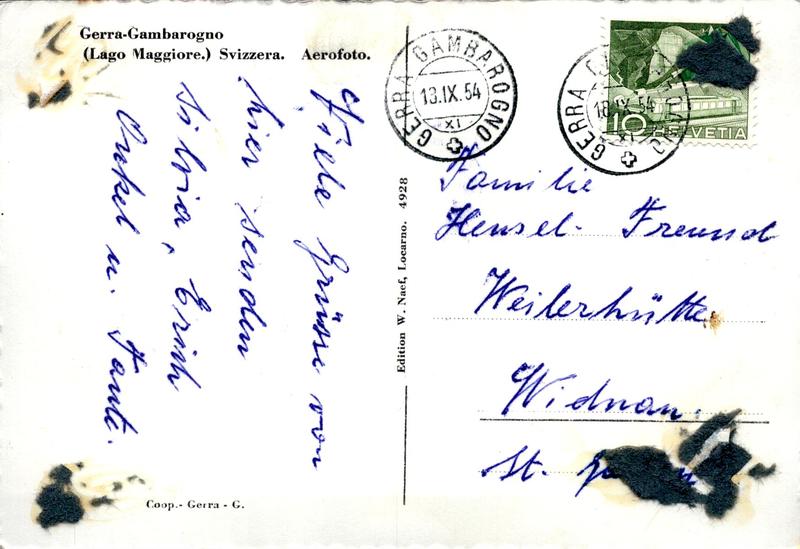 Gerra-Gambarogno
(Lago Maggiore.) Svizzera. Aerofoto.
Viele Grüsse von
hier senden
Silvia, Erich
Onkel u. Tante.
Coop.- Gerra - G.
Edition W. Naef, Locarno. 4928
GERRA GAMBAROGNO
18.IX.54
XI
GERRA
18.IX.54
XI
10 HELVETIA
Familie
Hensel-Freund
Weilerhütte
Widnau.
St.